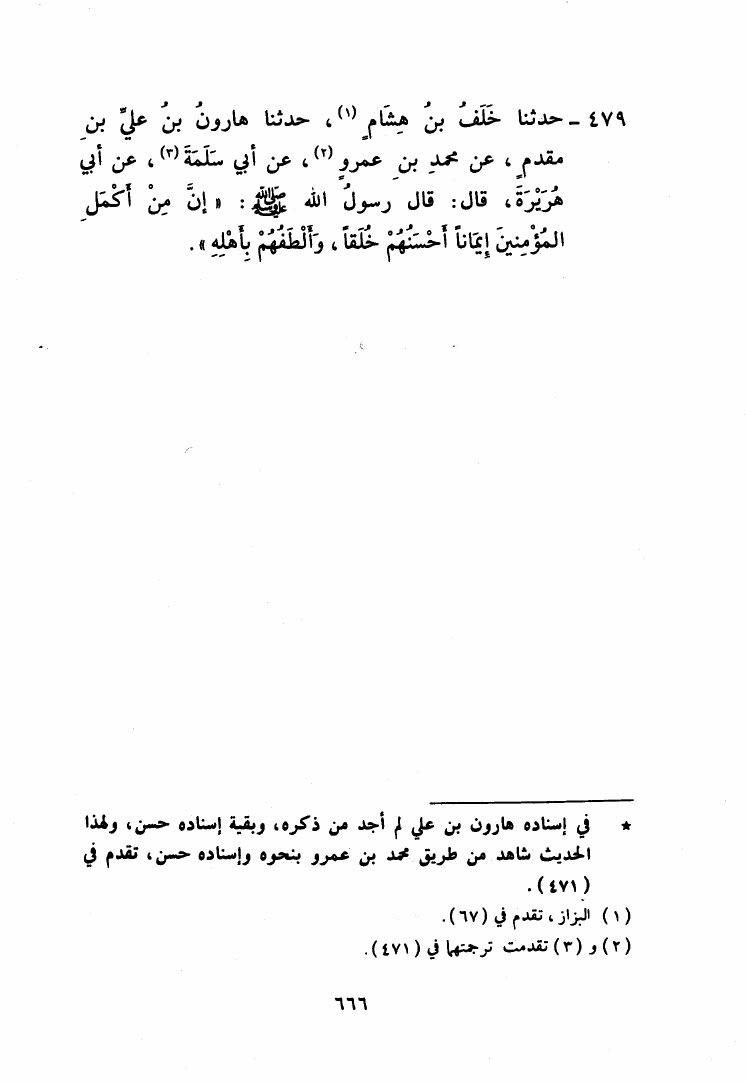 ٤٧٩ ـ حدثنا خَلَفُ بنُ هِشَامٍ (١) ، حدثنا هارونُ بنُ عليِّ بنِ
مقدمٍ ، عن محمدِ بنِ عمرٍو (٢) ، عن أبي سَلَمَةَ (٣) ، عن أبي
هُرَيْرَةَ ، قال : قال رسولُ الله ﷺ : « إنَّ مِنْ أَكْمَلِ
المُؤْمِنينَ إيمَاناً أَحْسَنُهُمْ خُلَقاً ، وَأَلْطَفُهُمْ بِأَهْلِهِ » .
★ في إسناده هارون بن علي لم أجد من ذكره ، وبقية إسناده حسن ، ولهذا
الحديث شاهد من طريق محمد بن عمرو بنحوه وإسناده حسن ، تقدم في
(٤٧١) .
(١) البزاز ، تقدم في (٦٧) .
(٢) و (٣) تقدمت ترجمتهما في (٤٧١) .
٦٦٦